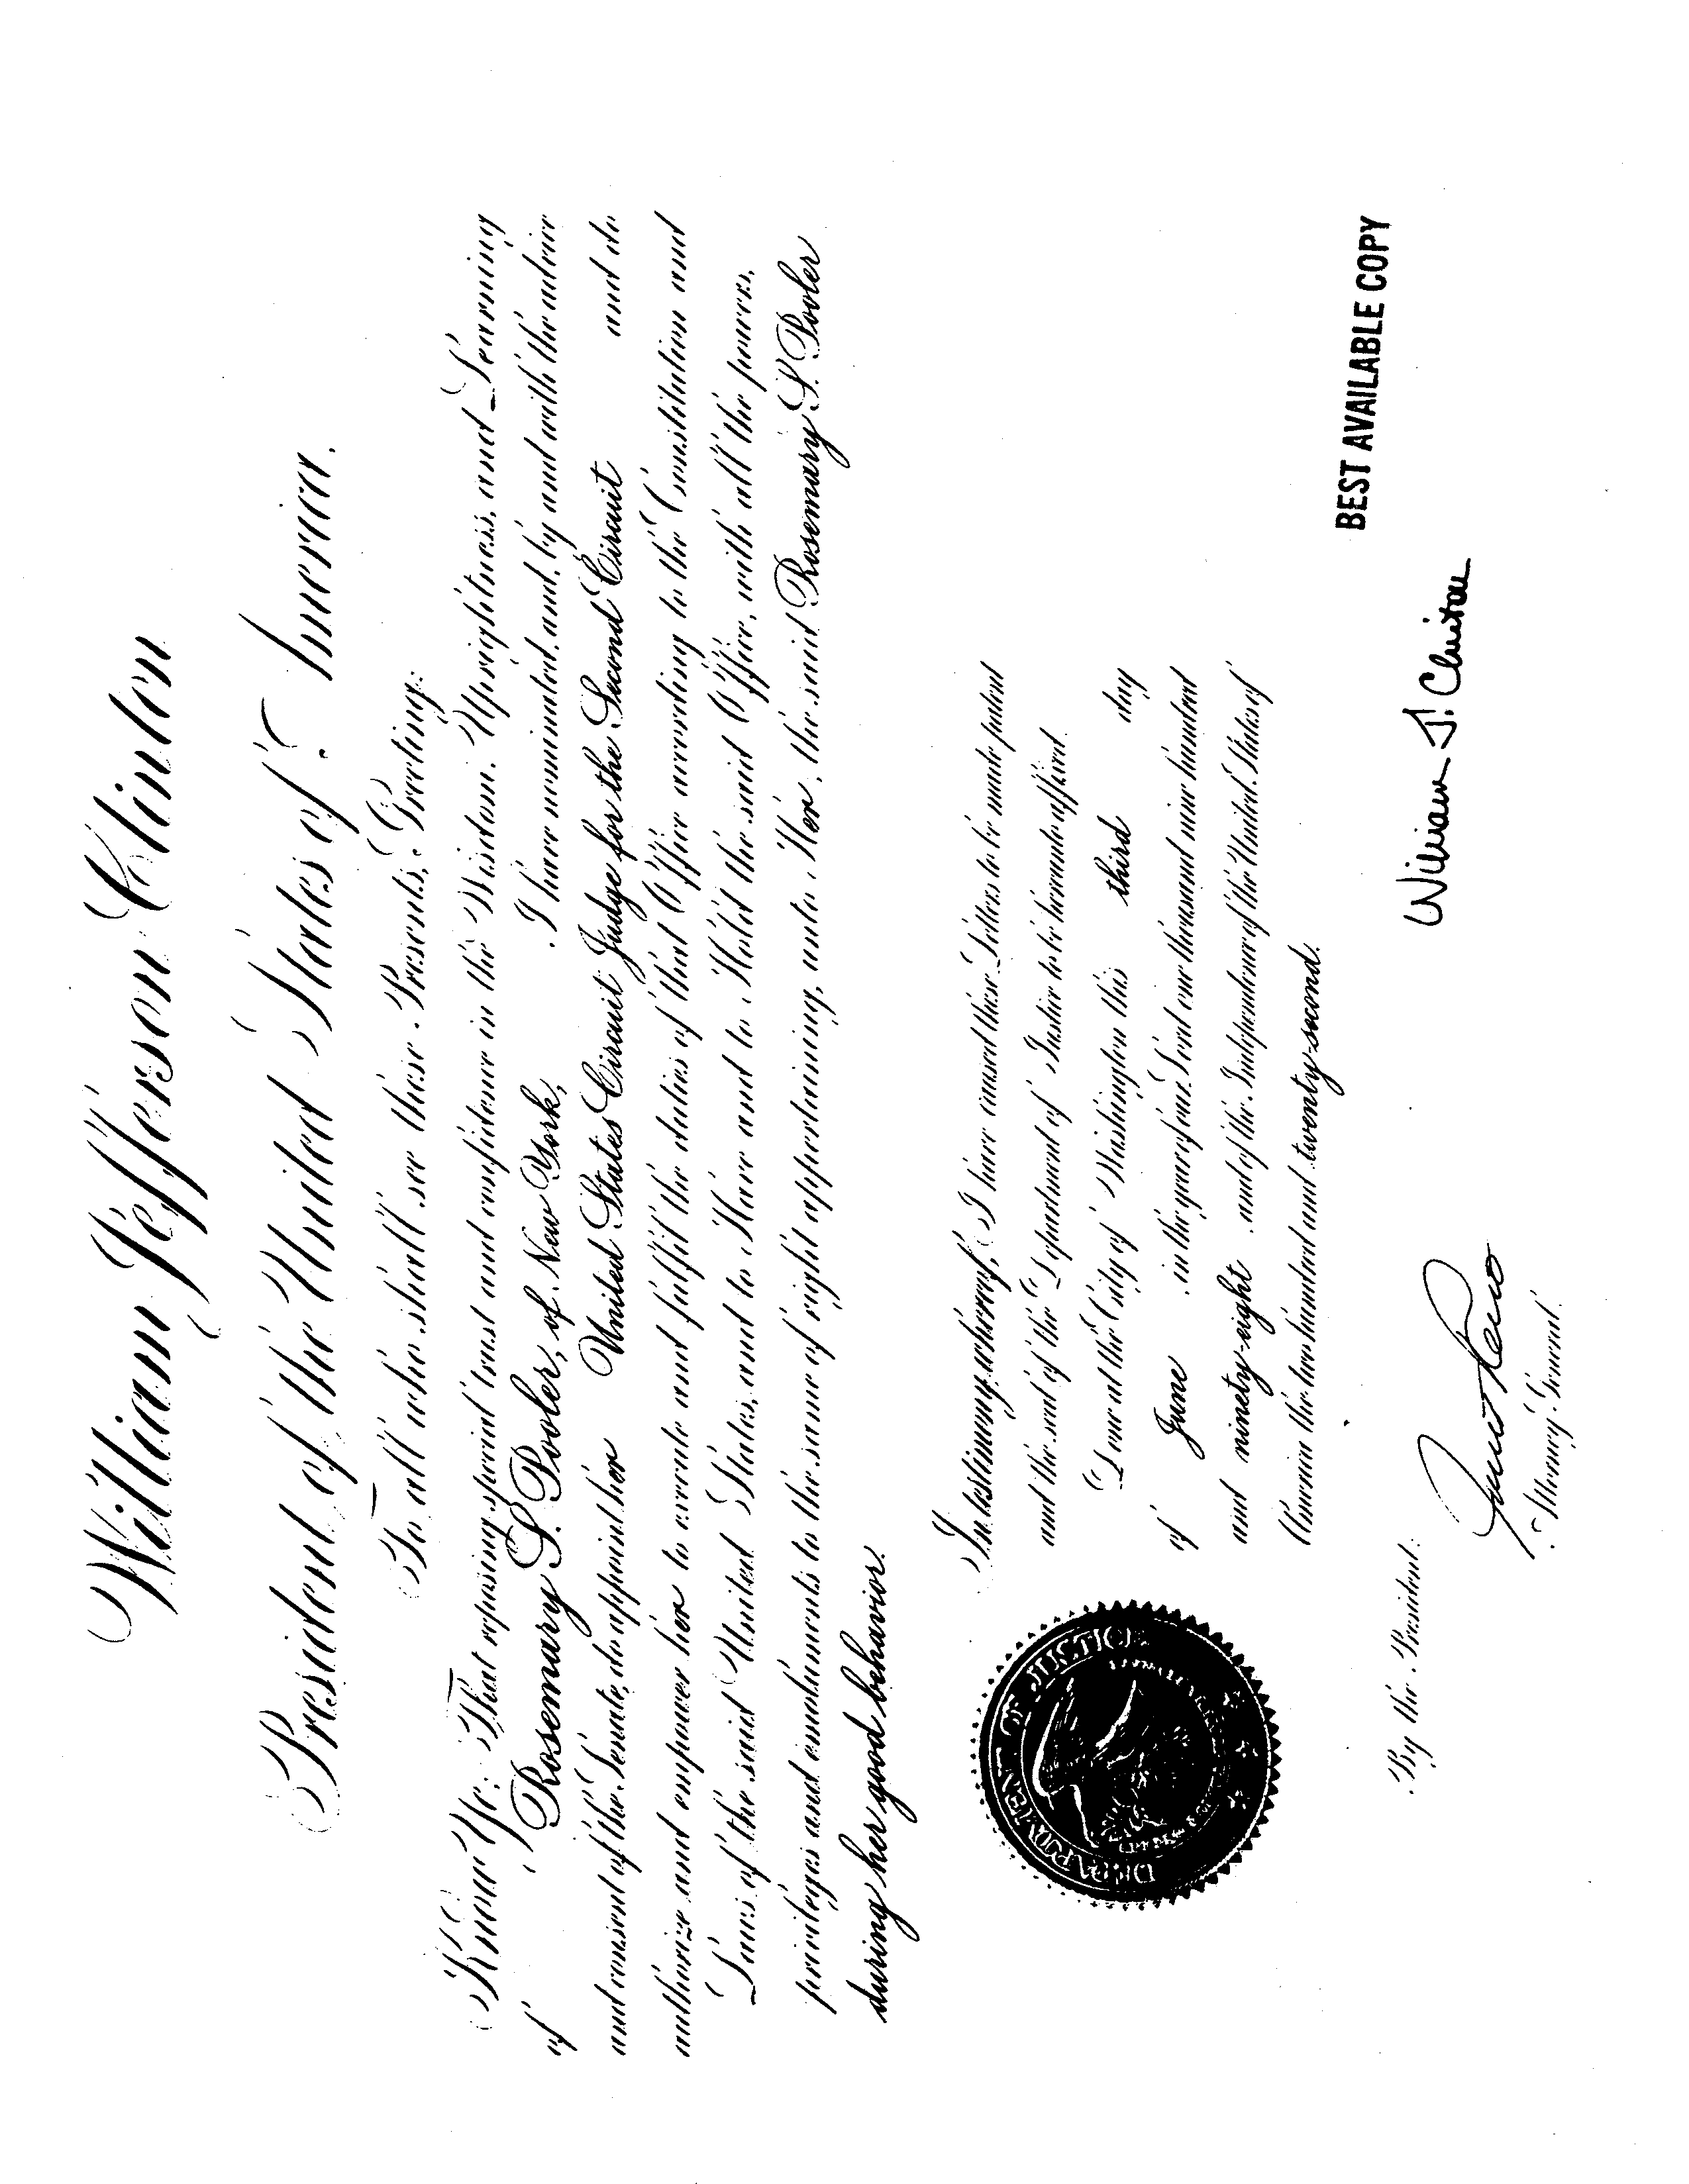 William Jefferson Clinton
President of the United States of America.
To all who shall see these Presents, Greeting:
Know Ye: That reposing special trust and confidence in the Wisdom, Uprightness, and Learning
of Rosemary S. Pooler, of New York, I have nominated, and, by and with the advice
and consent of the Senate, do appoint her United States Circuit Judge for the Second Circuit and do
authorize and empower her to execute and fulfil the duties of that Office according to the Constitution and
Laws of the said United States, and to Have and to Hold the said Office, with all the powers,
privileges and emoluments to the same of right appertaining, unto Her, the said Rosemary S. Pooler
during her good behavior.
In testimony whereof, I have caused these Letters to be made patent
and the seal of the Department of Justice to be hereunto affixed.
Done at the City of Washington this third day
of June in the year of our Lord one thousand nine hundred
and ninety-eight and of the Independence of the United States of
America the two hundred and twenty-second.
DEPARTMENT OF JUSTICE
BEST AVAILABLE COPY
William J. Clinton
By the President:
Janet Reno
Attorney General.